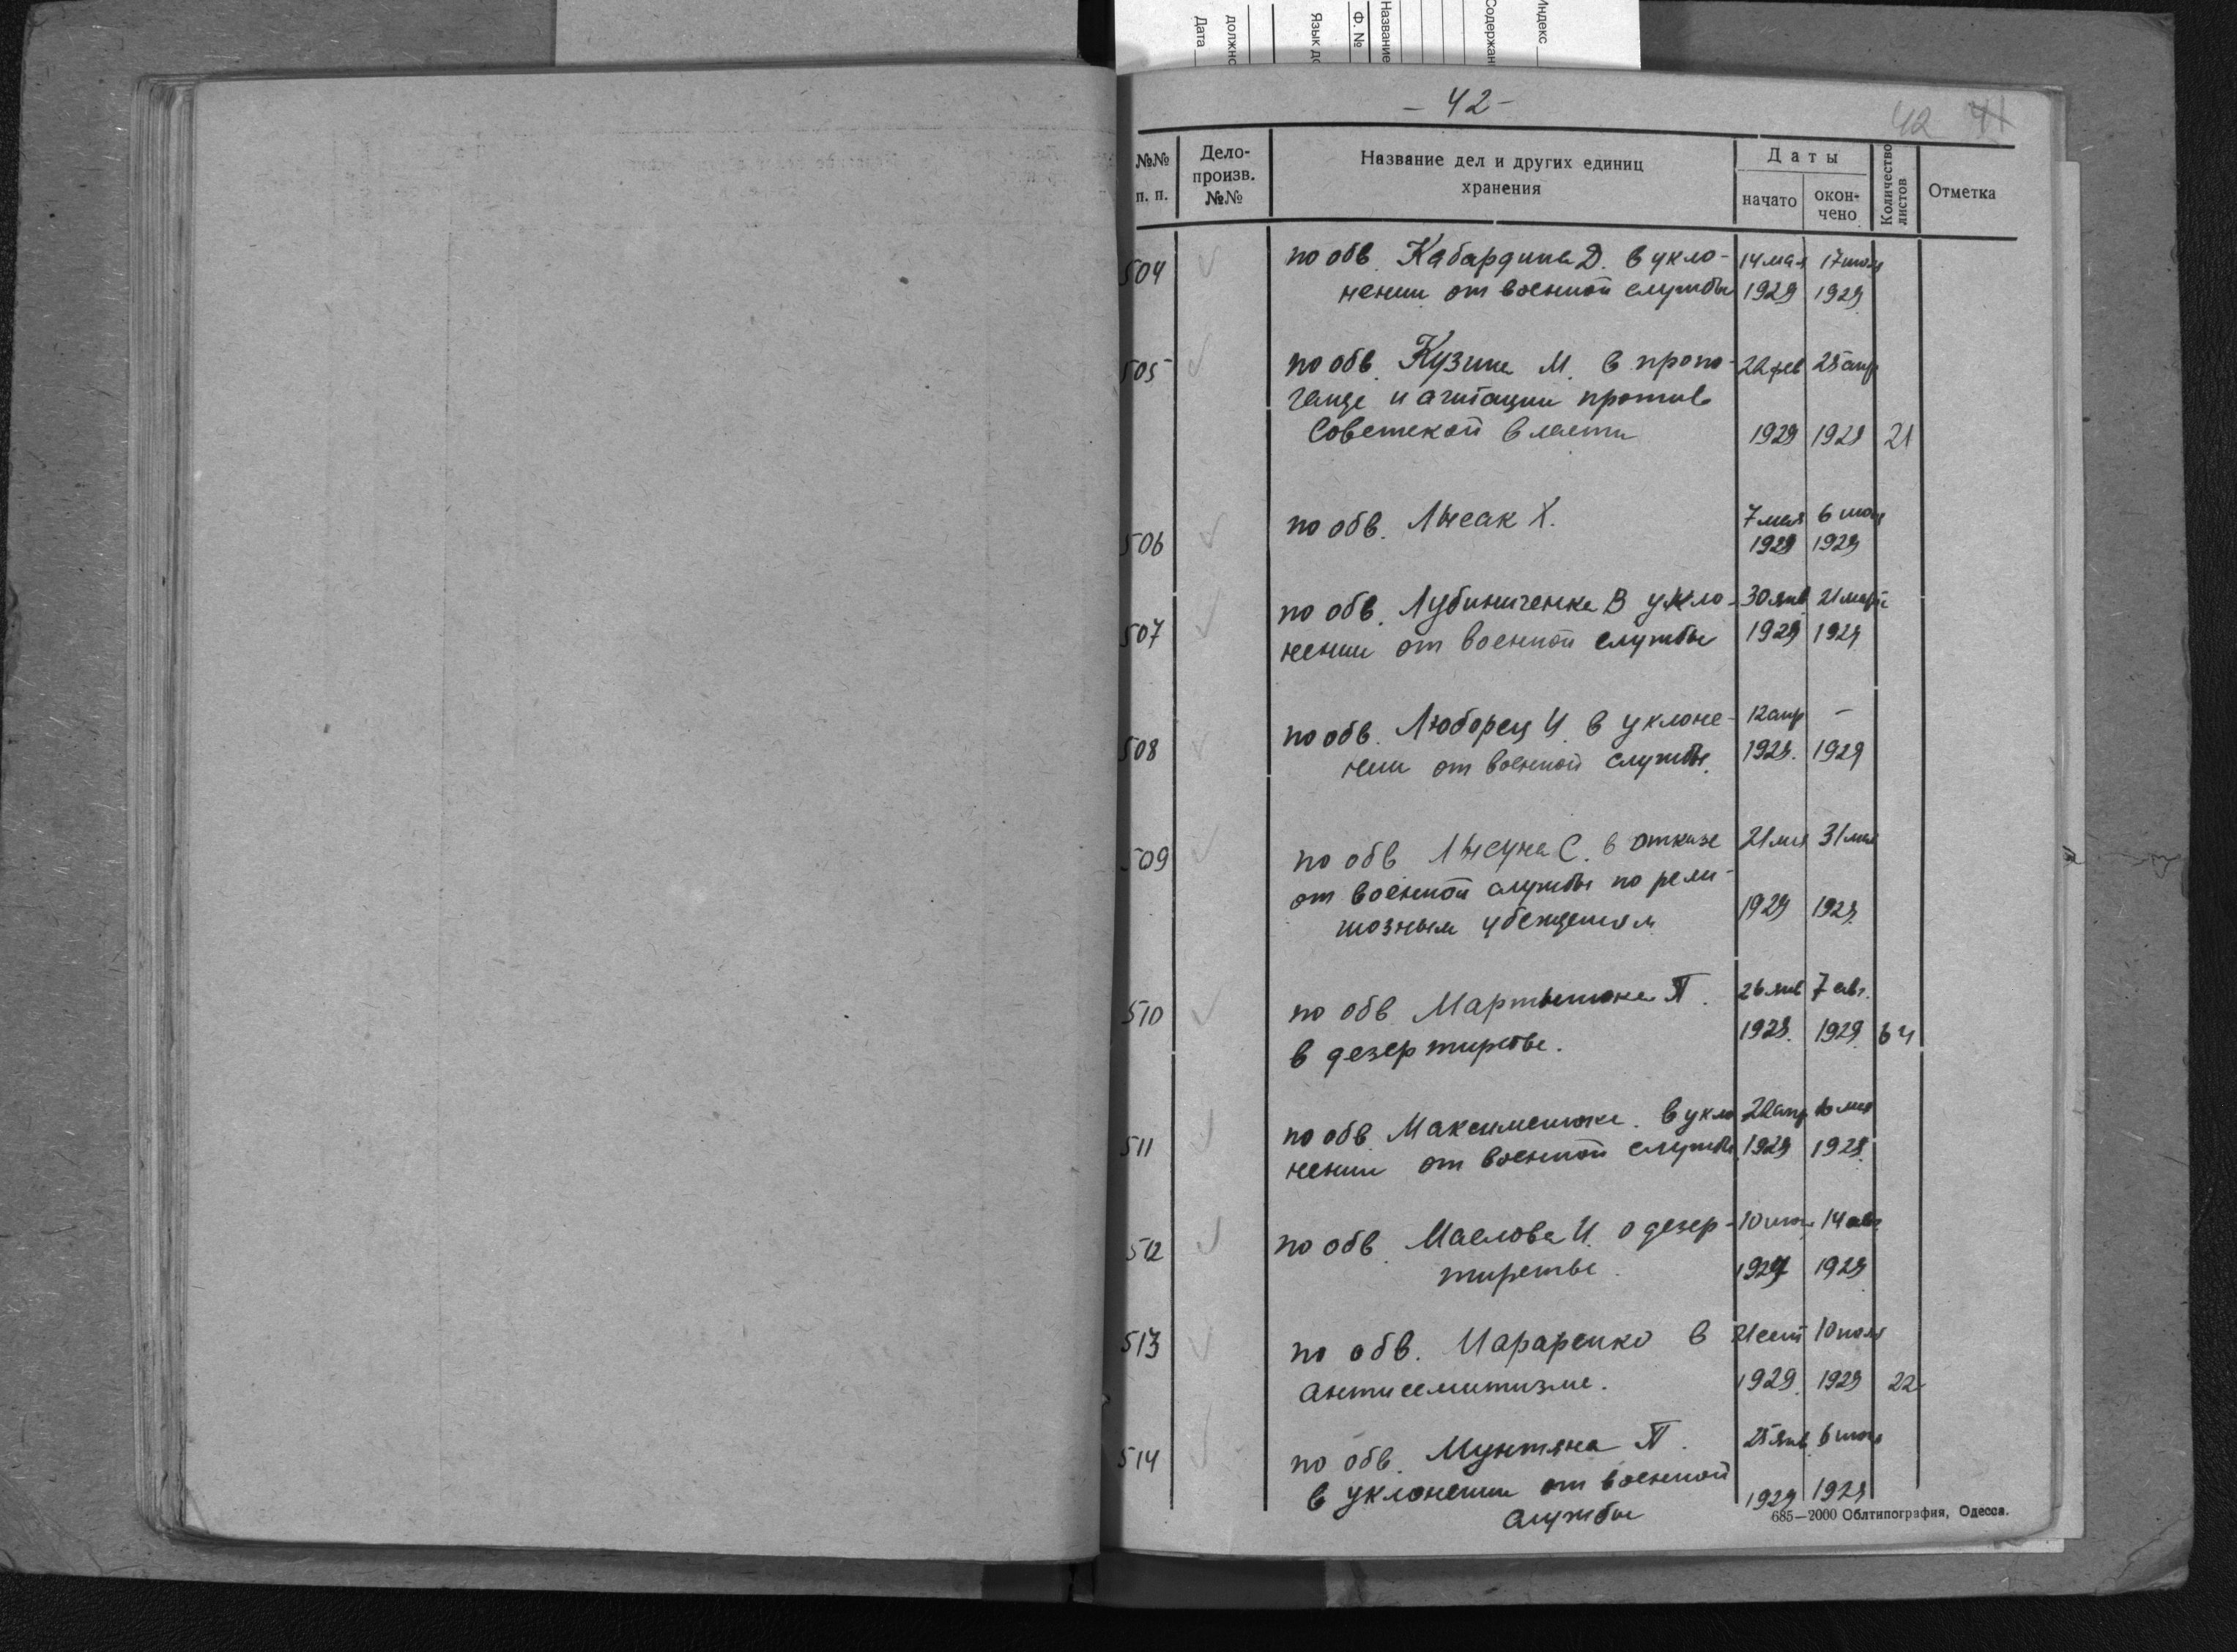 Индекс
Содержан
Название
Ф. №
Язык до
должно
Дата
- 42 -
42 41
№№ п. п.
Дело-произв. №№
Название дел и других единиц хранения
Даты
начато
окон-чено
Количество листов
Отметка
504 по обв. Кабардина Д. в укло- 14 мая 17 июля
нении от военной службы 1929 1929
505 по обв. Кузина М. в пропо- 22 фев 25 апр
ганде и агитации против
Советской власти 1929 1929 21
506 по обв. Лысак Х. 7 мая 6 июня
1929 1929
507 по обв. Лубиниченка В укло- 30 янв 21 март
нении от военной службы 1929 1929
508 по обв. Люборец И. в уклоне- 12 апр -
нии от военной службы. 1929. 1929
509 по обв. Лысуна С. в отказе 21 мая 31 мая
от военной службы по рели-
гиозным убеждениям 1929 1929.
510 по обв. Мартынюка П. 26 янв 7 авг.
в дезертирстве. 1929. 1929 64
511 по обв. Максименюка. в укло 22 апр мая
нении от военной службы 1929 1929.
512 по обв. Маслова И. о дезер- 10 14 авг
тирстве. 1927 1929
513 по обв. Марарепко в 21 сент 10
антисемитизме. 1929. 1929 22
514 по обв. Мунтяна П. 25 янв 6 июня
в уклонении от военной
службы 1929 1929
685—2000 Облтипография, Одесса.